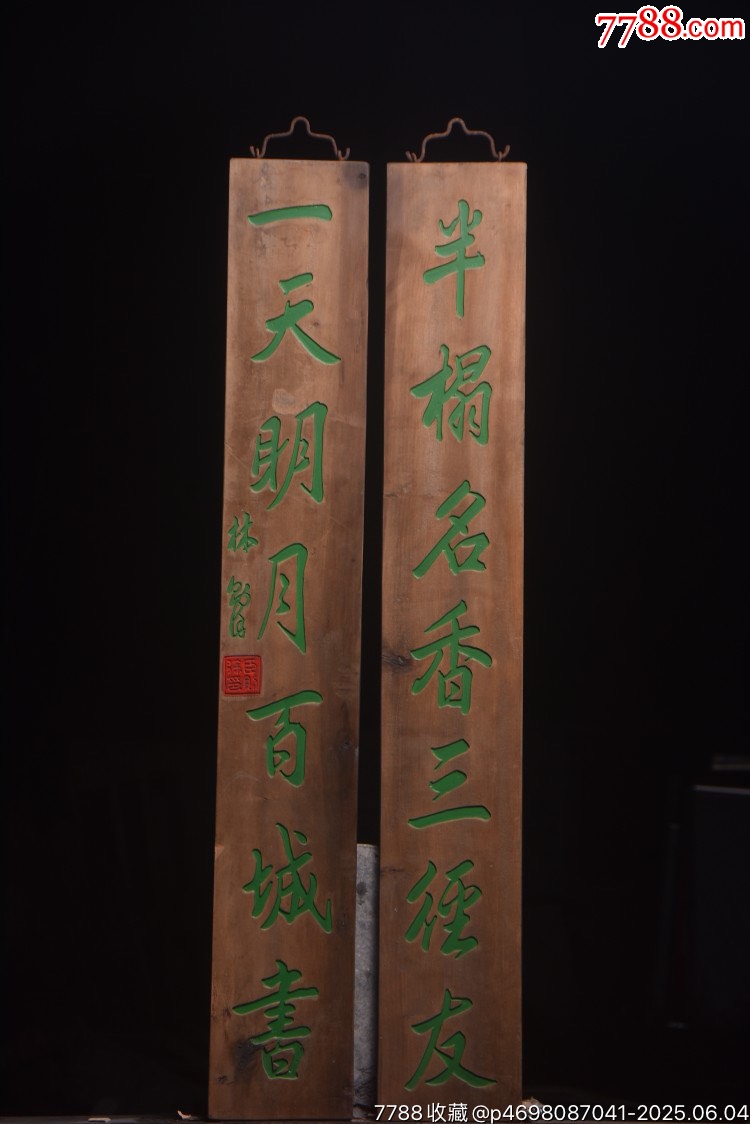 7788.com
半榻名香三徑友
一天明月百城書
林
7788收藏@p4698087041-2025.06.04